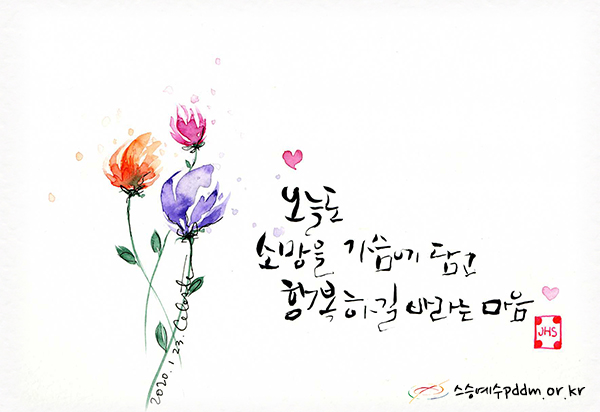 오늘도
소망을 가슴에 담고
행복하길 바라는 마음
JHS
2020.1.23. Celeste
스승예수pddm.or.kr